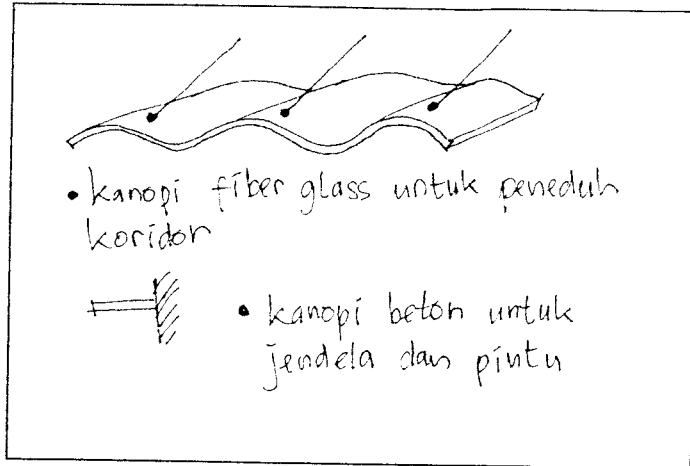 • kanopi fiber glass untuk peneduh
koridor
• kanopi beton untuk
jendela dan pintu